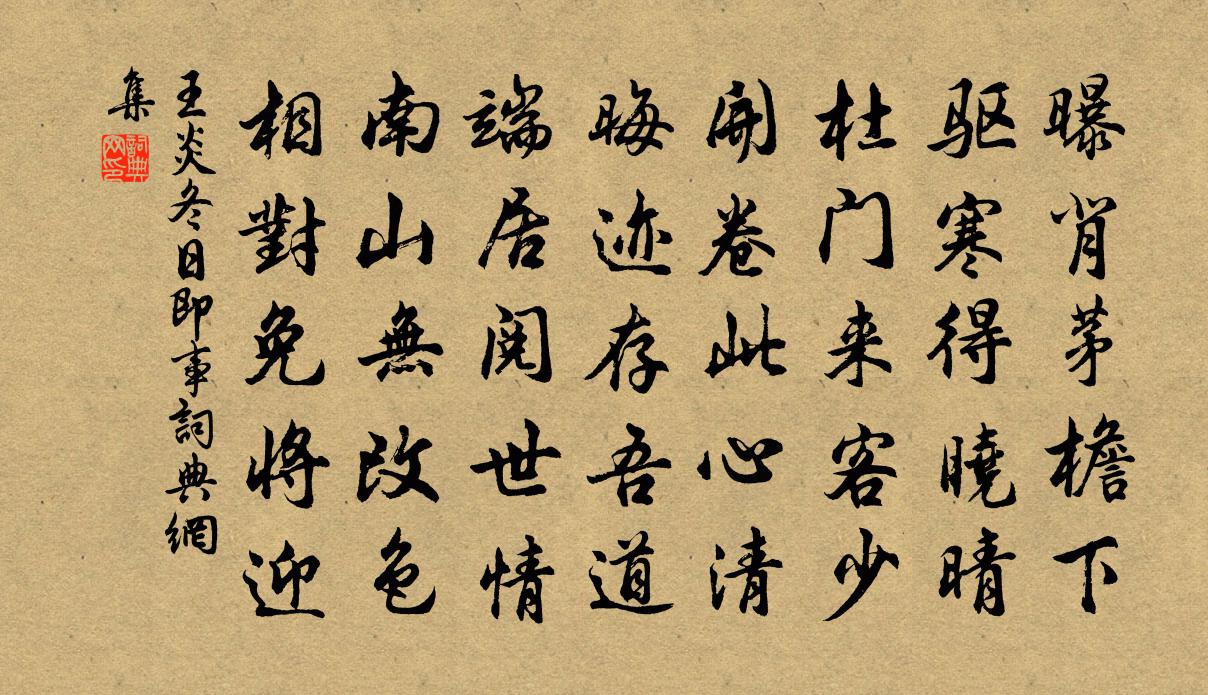 曝背茅檐下
驱寒得曉晴
杜门来客少
開卷此心清
晦迹存吾道
端居閱世情
南山無改色
相對免將迎
王炎冬日即事詞典網
集
詞典
网印